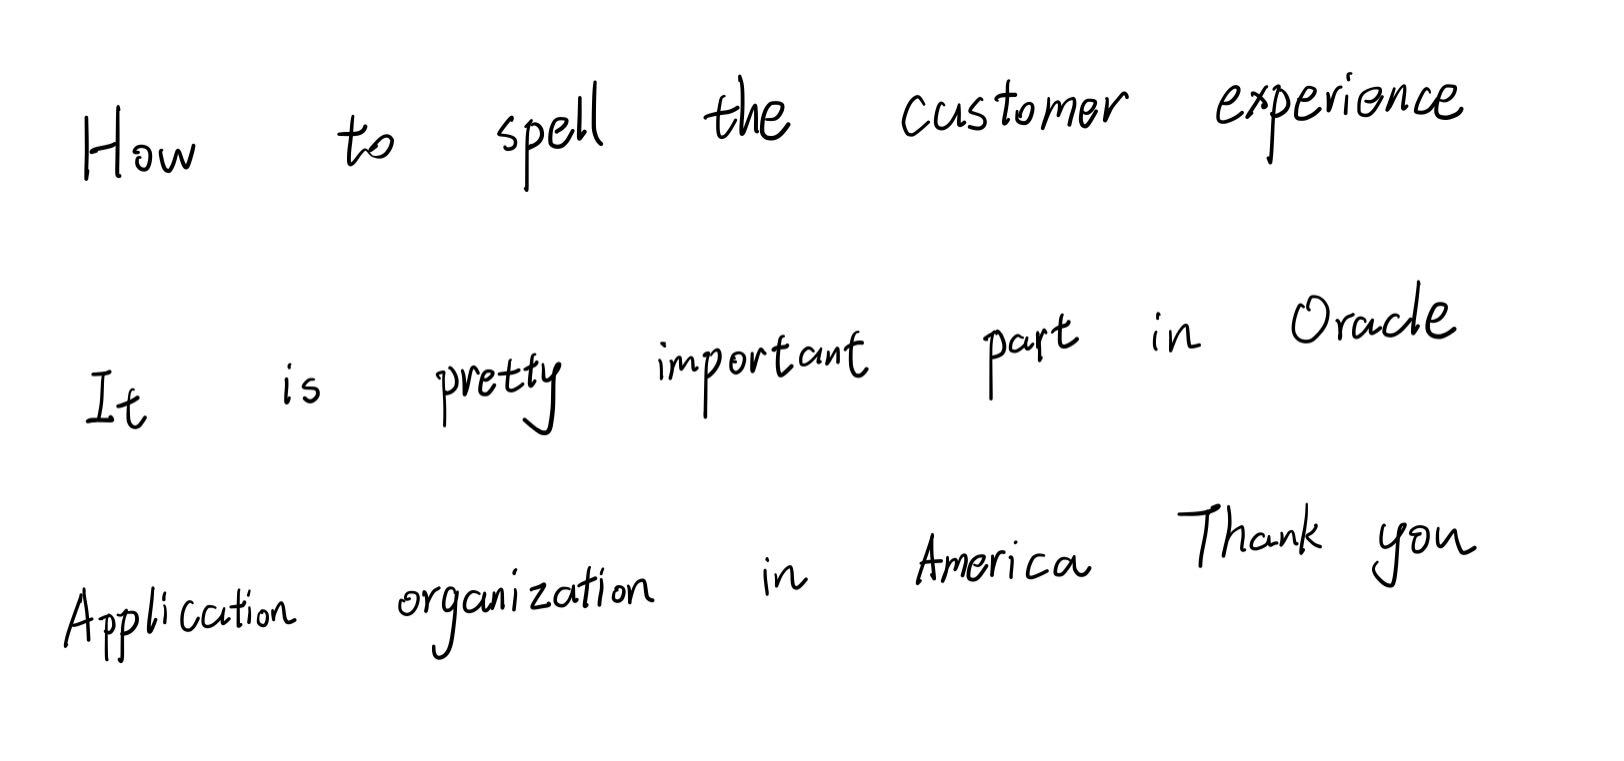 How to spell the customer experience
It is pretty important part in Oracle
Application organization in America Thank you